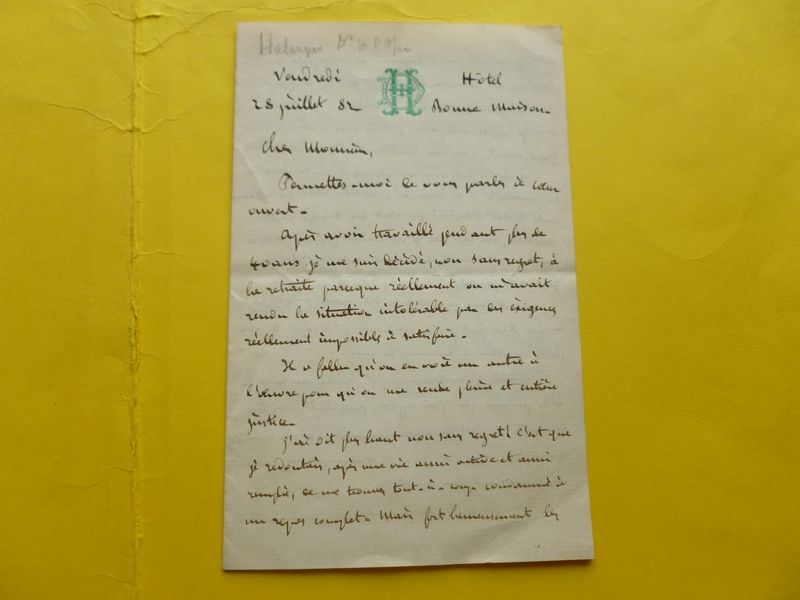 Halanzier Dr de l'Opéra
Vendredi Hôtel
28 juillet 82 Bonne Maison
Cher Monsieur,
Permettez-moi de vous parler à cœur
ouvert.
Après avoir travaillé pendant plus de
40 ans je me suis décidé, non sans regret, à
la retraite parceque réellement on m'avait
rendu la situation intolérable par des éxigences
réellement impossibles à satisfaire.
Il a fallu qu'on en voit un autre à
l'œuvre pour qu'on me rende pleine et entière
justice.
J'ai dit plus haut non sans regret! C'est que
je redoutais, après une vie aussi active et aussi
remplie, de me trouver tout-à-coup condamné à
un repos complet. Mais fort heureusement les